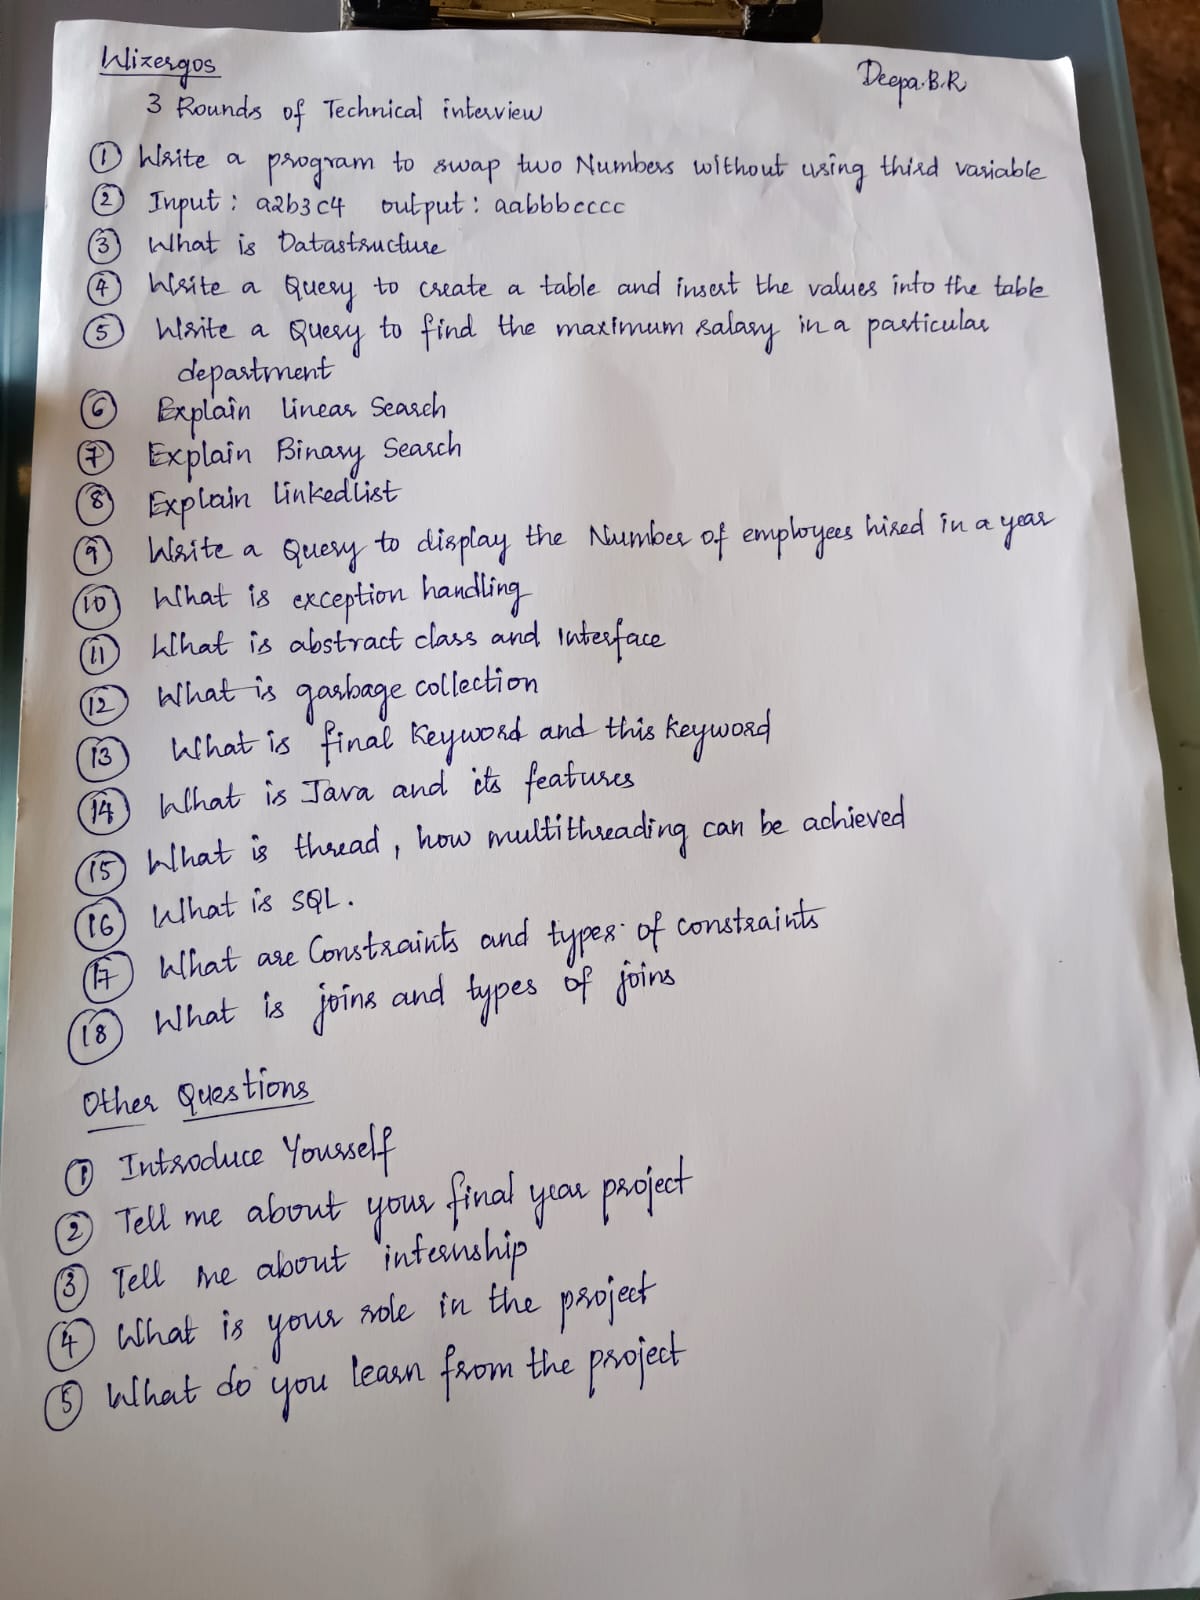 Wizergos
Deepa.B.R
3 Rounds of Technical interview
① Write a program to swap two Numbers without using third variable
② Input : a2b3c4 output : aabbbcccc
③ What is Datastructure
④ Write a Query to create a table and insert the values into the table
⑤ Write a Query to find the maximum salary in a particular
department
⑥ Explain linear Search
⑦ Explain Binary Search
⑧ Explain linkedlist
⑨ Write a Query to display the Number of employees hired in a year
⑩ What is exception handling
⑪ What is abstract class and Interface
⑫ What is garbage collection
⑬ What is final keyword and this keyword
⑭ What is Java and its features
⑮ What is thread, how multithreading can be achieved
⑯ What is SQL.
⑰ What are Constraints and types of constraints
⑱ What is joins and types of joins
Other Questions
① Introduce Yourself
② Tell me about your final year project
③ Tell me about internship
④ What is your role in the project
⑤ What do you learn from the project